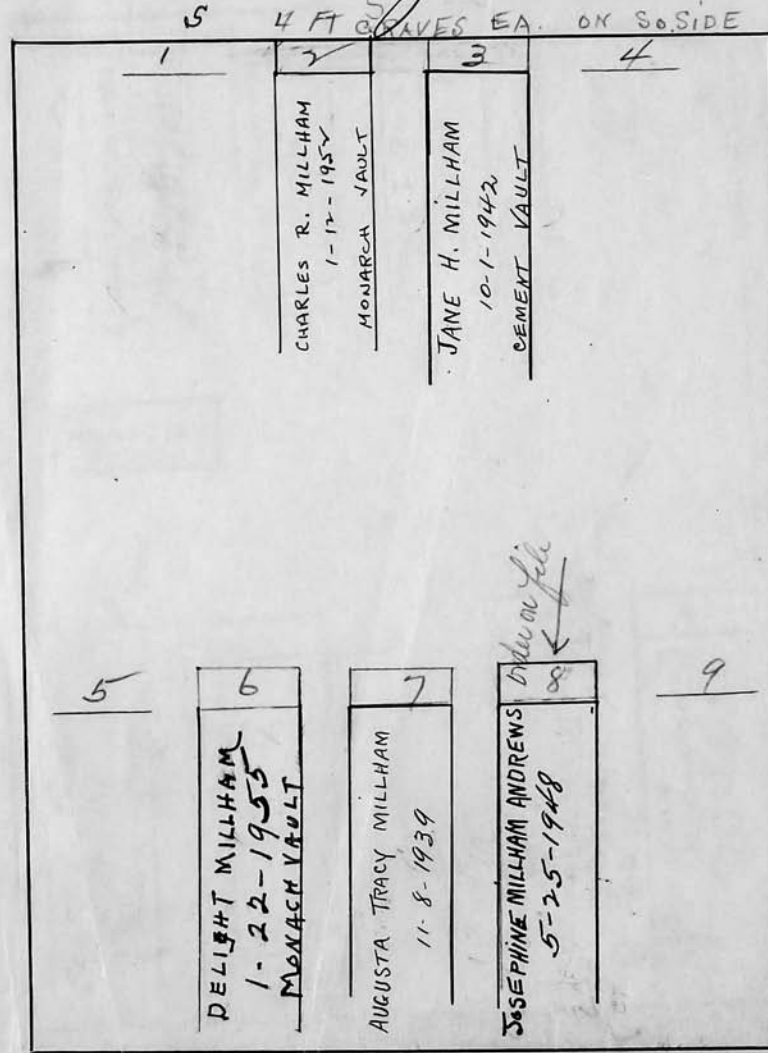 5 4 FT GRAVES EA. ON SO. SIDE
1 2 3 4
CHARLES R. MILLHAM
1-12-1952
MONARCH VAULT
JANE H. MILLHAM
10-1-1942
CEMENT VAULT
order on file
5 6 7 8 9
DELIGHT MILLHAM
1-22-1955
MONACH VAULT
AUGUSTA TRACY MILLHAM
11-8-1939
JOSEPHINE MILLHAM ANDREWS
5-25-1948